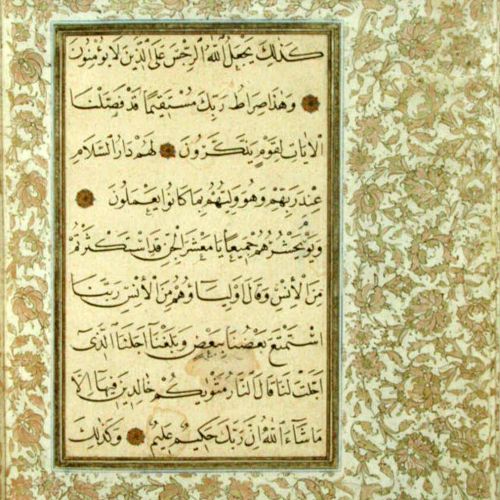 كذلك يجعل الله الرجس على الذين لا يؤمنون
وهذا صراط ربك مستقيما قد فصلنا
الايات لقوم يذكرون لهم دار السلام
عند ربهم وهو وليهم بما كانوا يعملون
ويوم يحشرهم جميعا يا معشر الجن قد استكثرتم
من الأنس وقال اولياؤهم من الأنس ربنا
استمتع بعضنا ببعض وبلغنا اجلنا الذى
اجلت لنا قال النار مثويكم خالدين فيها الا
ما شاء الله ان ربك حكيم عليم وكذلك